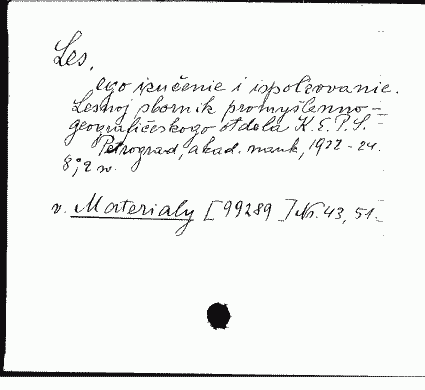 Les,
ego izučenie i ispolzovanie.
Lesnoj sbornik promyšlenno-
geografičeskogo otdela K.E.P.S.
Petrograd, akad. nauk, 1922-24.
8°, 2 w.
v. Materialy [99289] Nr. 43, 51.